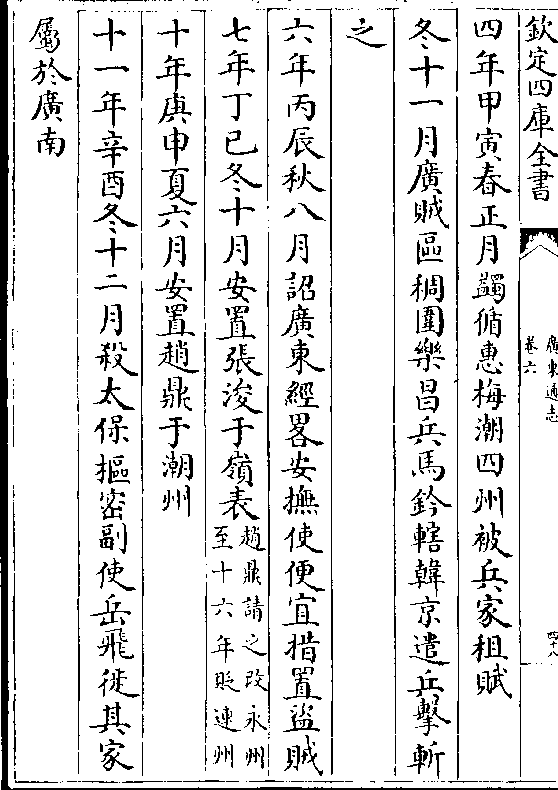 欽定四庫全書
廣東通志
卷六
四十八
四年甲寅春正月蠲循惠梅潮四州被兵家租賦
冬十一月廣賊區稠圍樂昌兵馬鈐轄韓京遣兵擊斬
之
六年丙辰秋八月詔廣東經畧安撫使便宜措置盜賊
七年丁巳冬十月安置張浚于嶺表趙鼎請之改永州至十六年貶連州
十年庚申夏六月安置趙鼎于潮州
十一年辛酉冬十二月殺太保樞密副使岳飛徙其家
屬於廣南